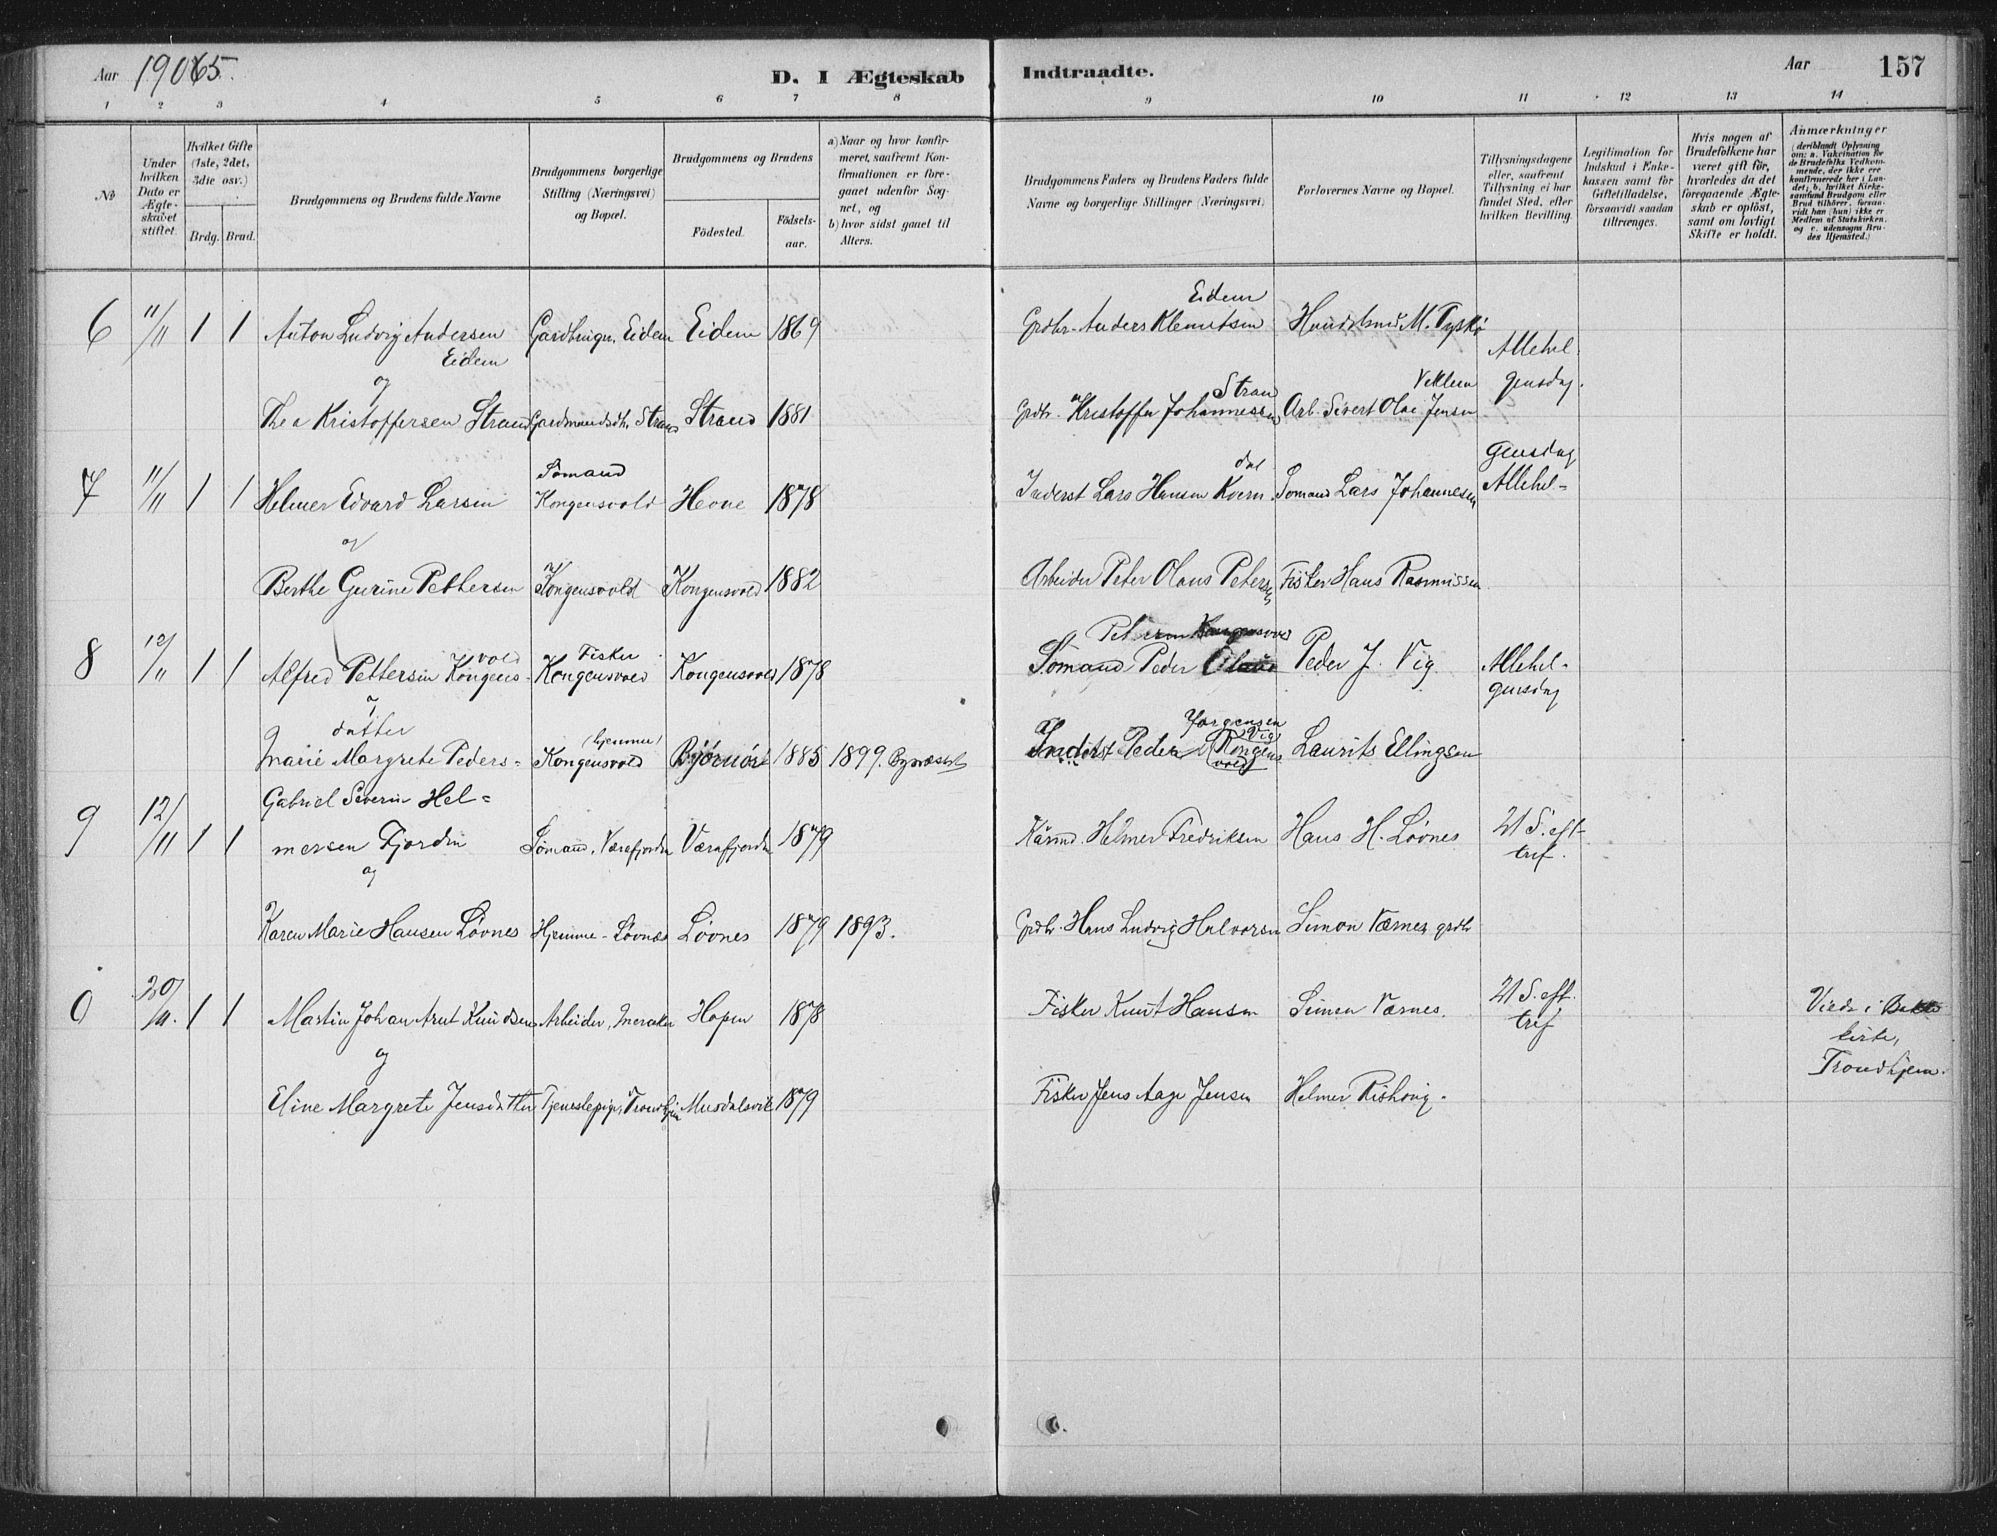 Aar 19065.
D. I Ægteskab Indtraadte.
Aar 157
1 2 3 4 5 6 7 8 9 10 11 12 13 14
№
Under hvilken Dato er Ægteskabet stiftet.
Hvilket Gifte (1ste, 2det, 3die osv.)
Brdg. Brud.
Brudgommens og Brudens fulde Navne
Brudgommens borgerlige Stilling (Næringsvei) og Bopel.
Brudgommens og Brudens
Födested.
Födsels-aar.
a) Naar og hvor konfirmeret, saafremt Konfirmationen er foregaaet udenfor Sognet, og
b) hvor sidst gaaet til Alters.
Brudgommens Faders og Brudens Faders fulde Navne og borgerlige Stillinger (Næringsvei)
Forlovernes Navne og Bopel.
Tillysningsdagene eller, saafremt Tillysning ei har fundet Sted, efter hvilken Bevilling.
Legitimation for Indskud i Enkekassen samt for Giftetilladelse, forsaavidt saadan tiltrænges.
Hvis nogen af Brudefolkene har været gift før, hvorledes da det foregaaende Ægteskab er oplöst, samt om lovligt Skifte er holdt.
Anmærkninger
(deriblandt Oplysning om: a. Vakcination for de Brudefolks Vedkommende, der ikke ere konfirmerede her i Landet; b. hvilket Kirkesamfund Brudgom eller Brud tilhører, forsaavidt han (hun) ikke er Medlem af Statskirken, og c. udensogns Brudes Hjemsted.)
6 11/11 1 1 Anton Ludvig Andersen Eidem Gardbrugr. Eidem Eidem 1869 Grdbr. Anders Klemetsen Eidem M. Tyskø Allehel-
og gensdag.
Thea Kristoffersen Strand Gardmandsdtr. Strand Strand 1881 Grdbr. Kristoffer Johannessen Strand Arb. Sivert Olae Jensen Veklem
7 11/11 1 1 Helmer Edvard Larsen Sømand Kongensvold Hevne 1878 Inderst Lars Hansen Kverndal Sømand Lars Johannesen Allehel-gensdag
og
Berthe Gurine Pettersen Kongensvold Kongensvold 1882 Arbeider Peter Olaus Petersen Fisker Hans Rasmussen
8 12/11 1 1 Alfred Pettersen Kongensvold Fisker Kongensvold Kongensvold 1878 Sømand Peder Olaus Petersen Kongensvold Peder J. Vig Allehel-gensdag
og
Marie Margrete Pedersdatter (hjemme) Kongensvold Bjørnør 1885 1899. Inderst Peder Jørgensen Vig Kongensvold Laurits Ellingsen
9 12/11 1 1 Gabriel Severin Helmersen Fjorden Sømand, Værafjorden Værafjorden 1879 Helmer Fredriksen Hans H. Løvnes 21 S. eft. tref.
og
Karen Marie Hansen Løvnes Hjemme - Løvnes Løvnes 1879 1893. Grdbr. Hans Ludvig Halvorsen Simon Værnes grdbr
0 20/11. 1 1 Martin Johan Arnt Knudsen Arbeider, Meraker Hopen 1878 Fisker Knut Hansen Simon Værnes. 21 S. eft. tref Viede i Bakke kirke, Trondhjem.
og
Eline Margrete Jensdatter Tjenestepige, Trondhjem Musdalsvik 1879 Fisker Jens Aage Jensen Helmer Rishaug.